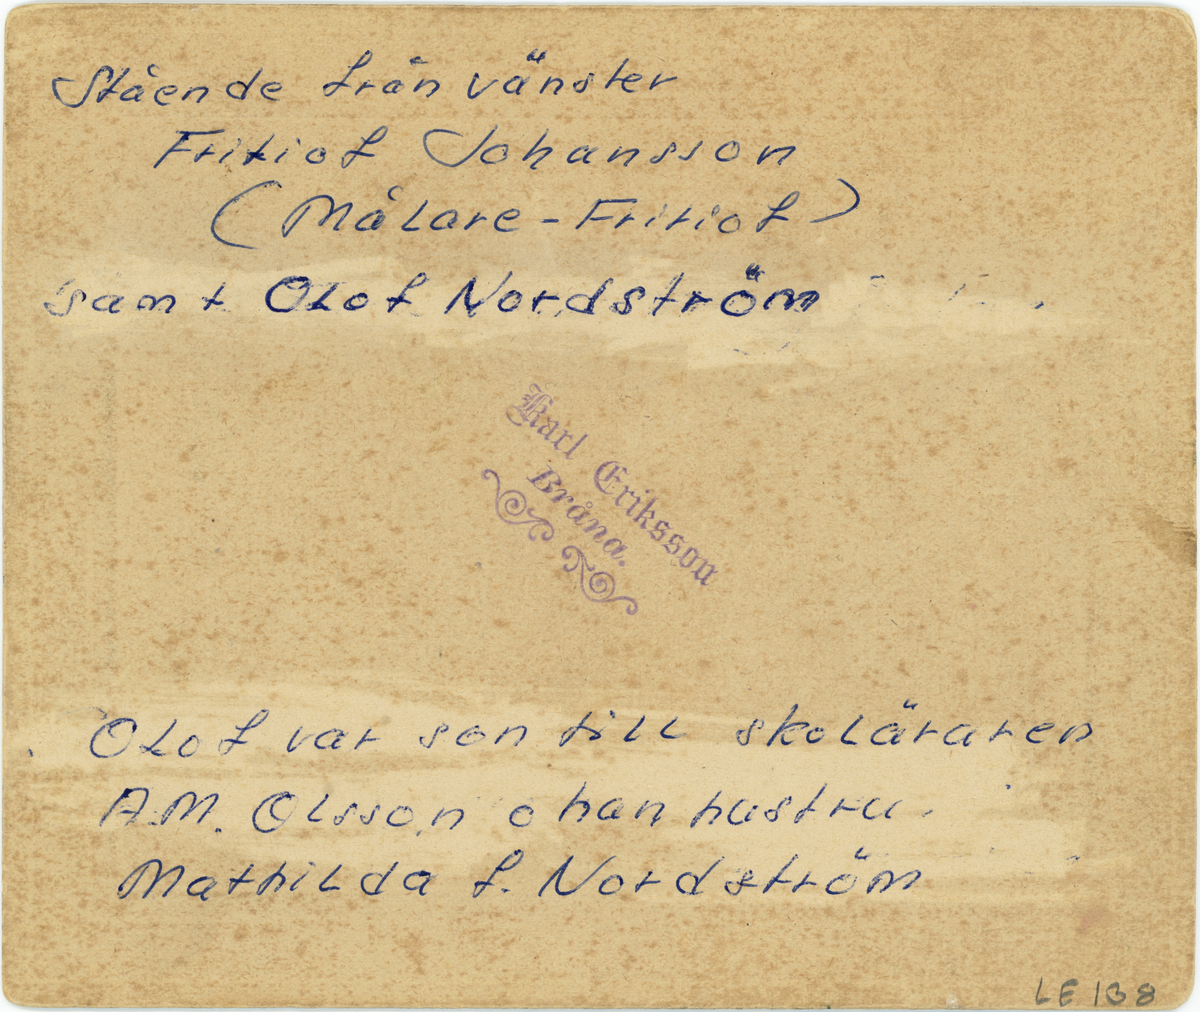 Stående från vänster
Fritiof Johansson
(Målare-Fritiof)
samt Olof Nordström
Karl Eriksson
Bråna.
Olof var son till skoläraren
A.M. Olsson o han hustru.
Mathilda f. Nordström
LE 138